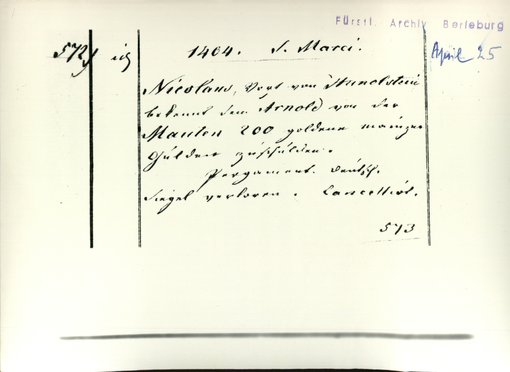 Fürstl. Archiv Berleburg
April 25
573) 1404. S. Marci.
Nicolaus, Vogt von Hunolstein
bekennt dem Arnold von der
Mauten 200 goldene mainzer
Gulden zu schulden.
Pergament. Deutsch.
Siegel verloren. Cancellirt.
573